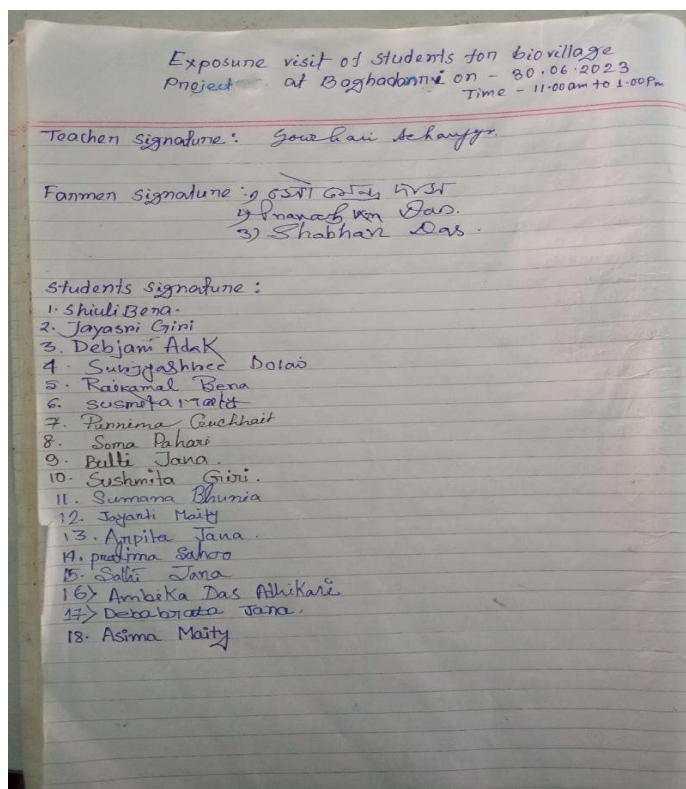 Exposure visit of students for biovillage
Project at Baghadanri on - 30.06.2023
Time - 11.00am to 1.00Pm
Teacher signature: Gourhari Acharjya.
Farmer signature: 1)
2) Das.
3) Shobhan Das.
Students signature:
1. Shiuli Bera.
2. Jayasri Giri
3. Debjani Adak
4. Dolai
5. Raikamal Bera
6. Susmita Maity
7. Purnima Guchhait
8. Soma Pahari
9. Bulti Jana.
10. Sushmita Giri.
11. Sumana Bhunia
12. Jayanti Maity
13. Arpita Jana.
14. pratima Sahoo
15. Sathi Jana
16) Ambeka Das Adhikari
17) Debabrata Jana.
18. Asima Maity